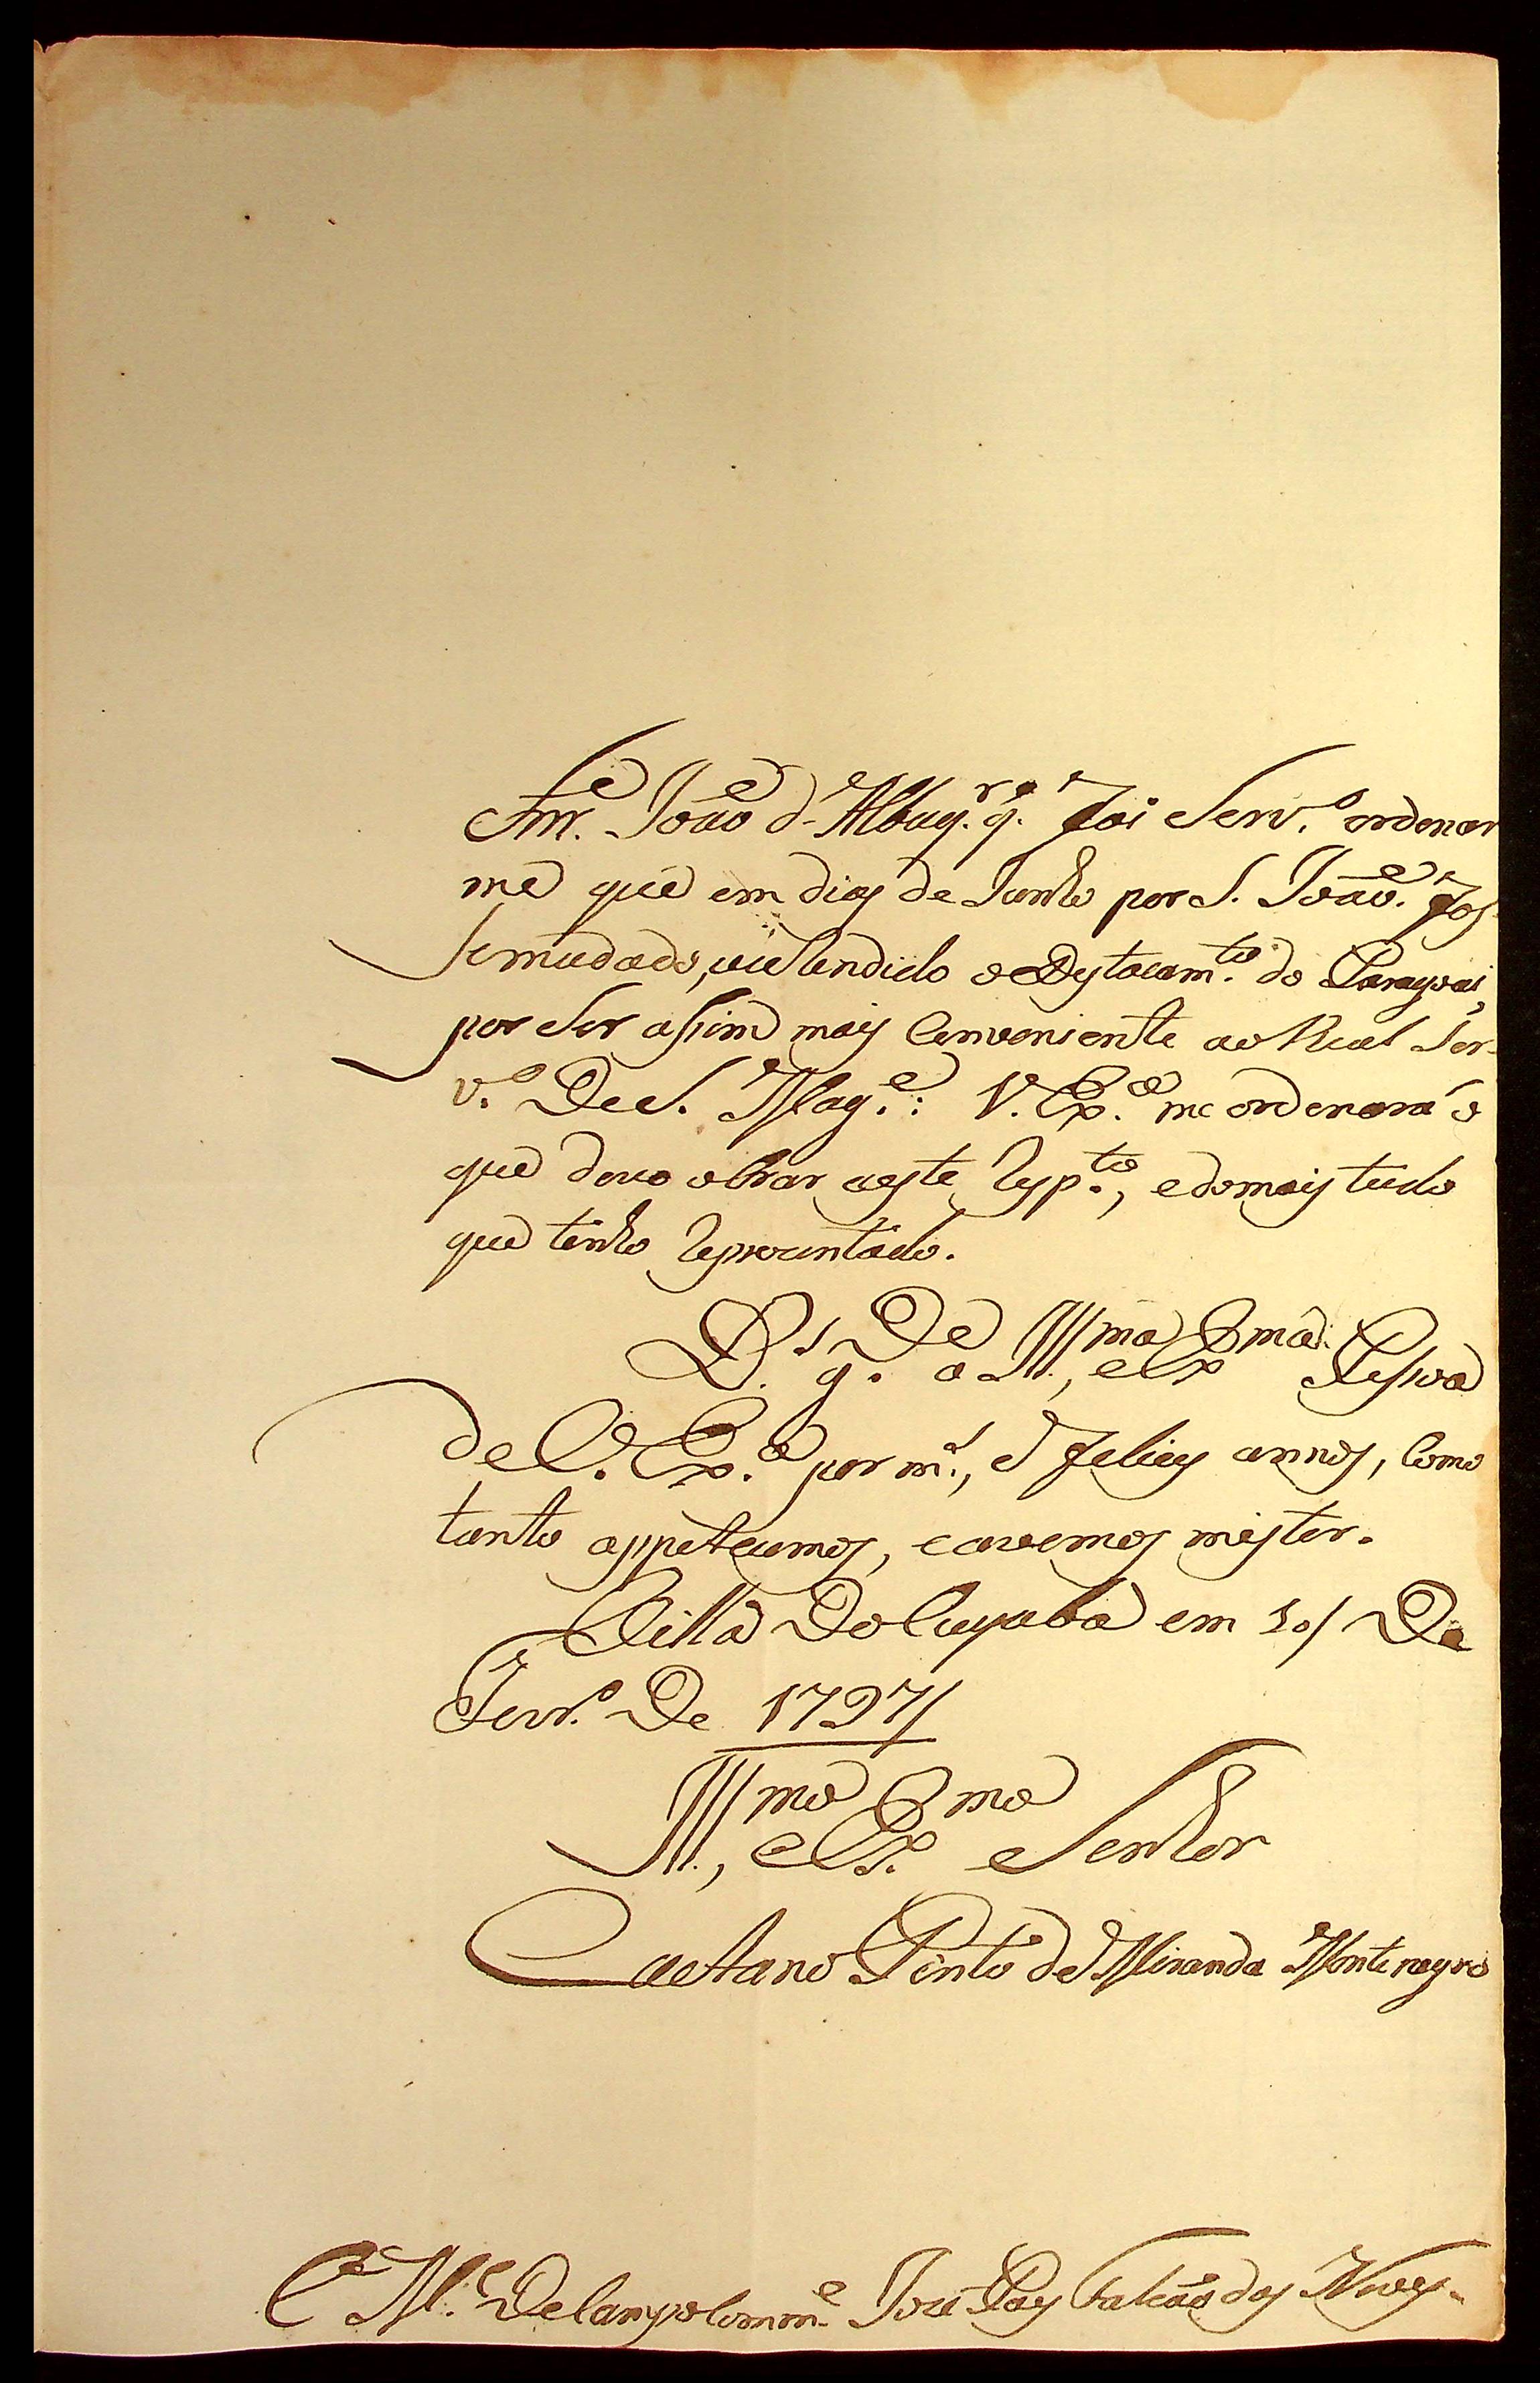 Snr. João d'Albuq.e q. foi Serv.o ordenar
me que em dias de Junho por S. João fos
se mudado, e rendido o Dystacam.to do Paragoai,
por Ser assim mais Conveniente ao Real Ser-
v.o De S. Mag.e: V. Ex.a me ordenará o
que devo obrar aeste resp.to, e do mais tudo
que tenho representado.
D.s g.De a Ill.ma, e Ex.ma Pessoa
de V. Ex.a por m.s, e felices annos, Como
tanto appetecemos, e avemos mister.
Villa Do Cuyaba em 20 De
Fevr.o De 1797
Ill.mo, e Ex.mo Senhor
Caetano Pinto de Miranda Montenegro
O M.e De Campo Comm.e José Paes Falcão das Neves